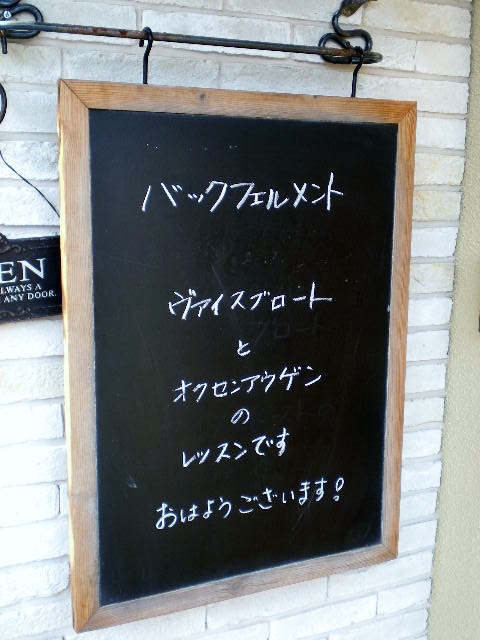 バックフェルメント
ヴァイスブロート
と
オクセンアウゲン
の
レッスンです
おはようございます!
EN
ALWAYS A
ANY DOOR.